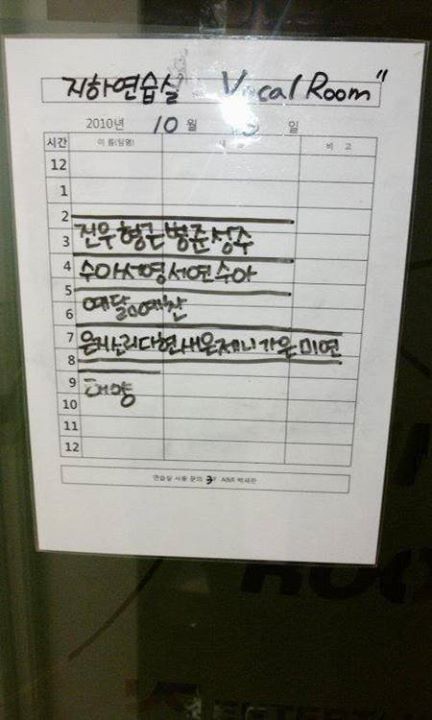 지하연습실 Vocal Room"
2010년 10 월 일
시간 이 름(팀명) 내 용 비 고
12
1
2
3 진우 형근 병준 성수
4 수아 서영 서연 수아
5
6 예달 예찬
7 은지 산리 다현 새온 제니 가은 미연
8
9 태양
10
11
12
연습실 사용 문의 3F A&R